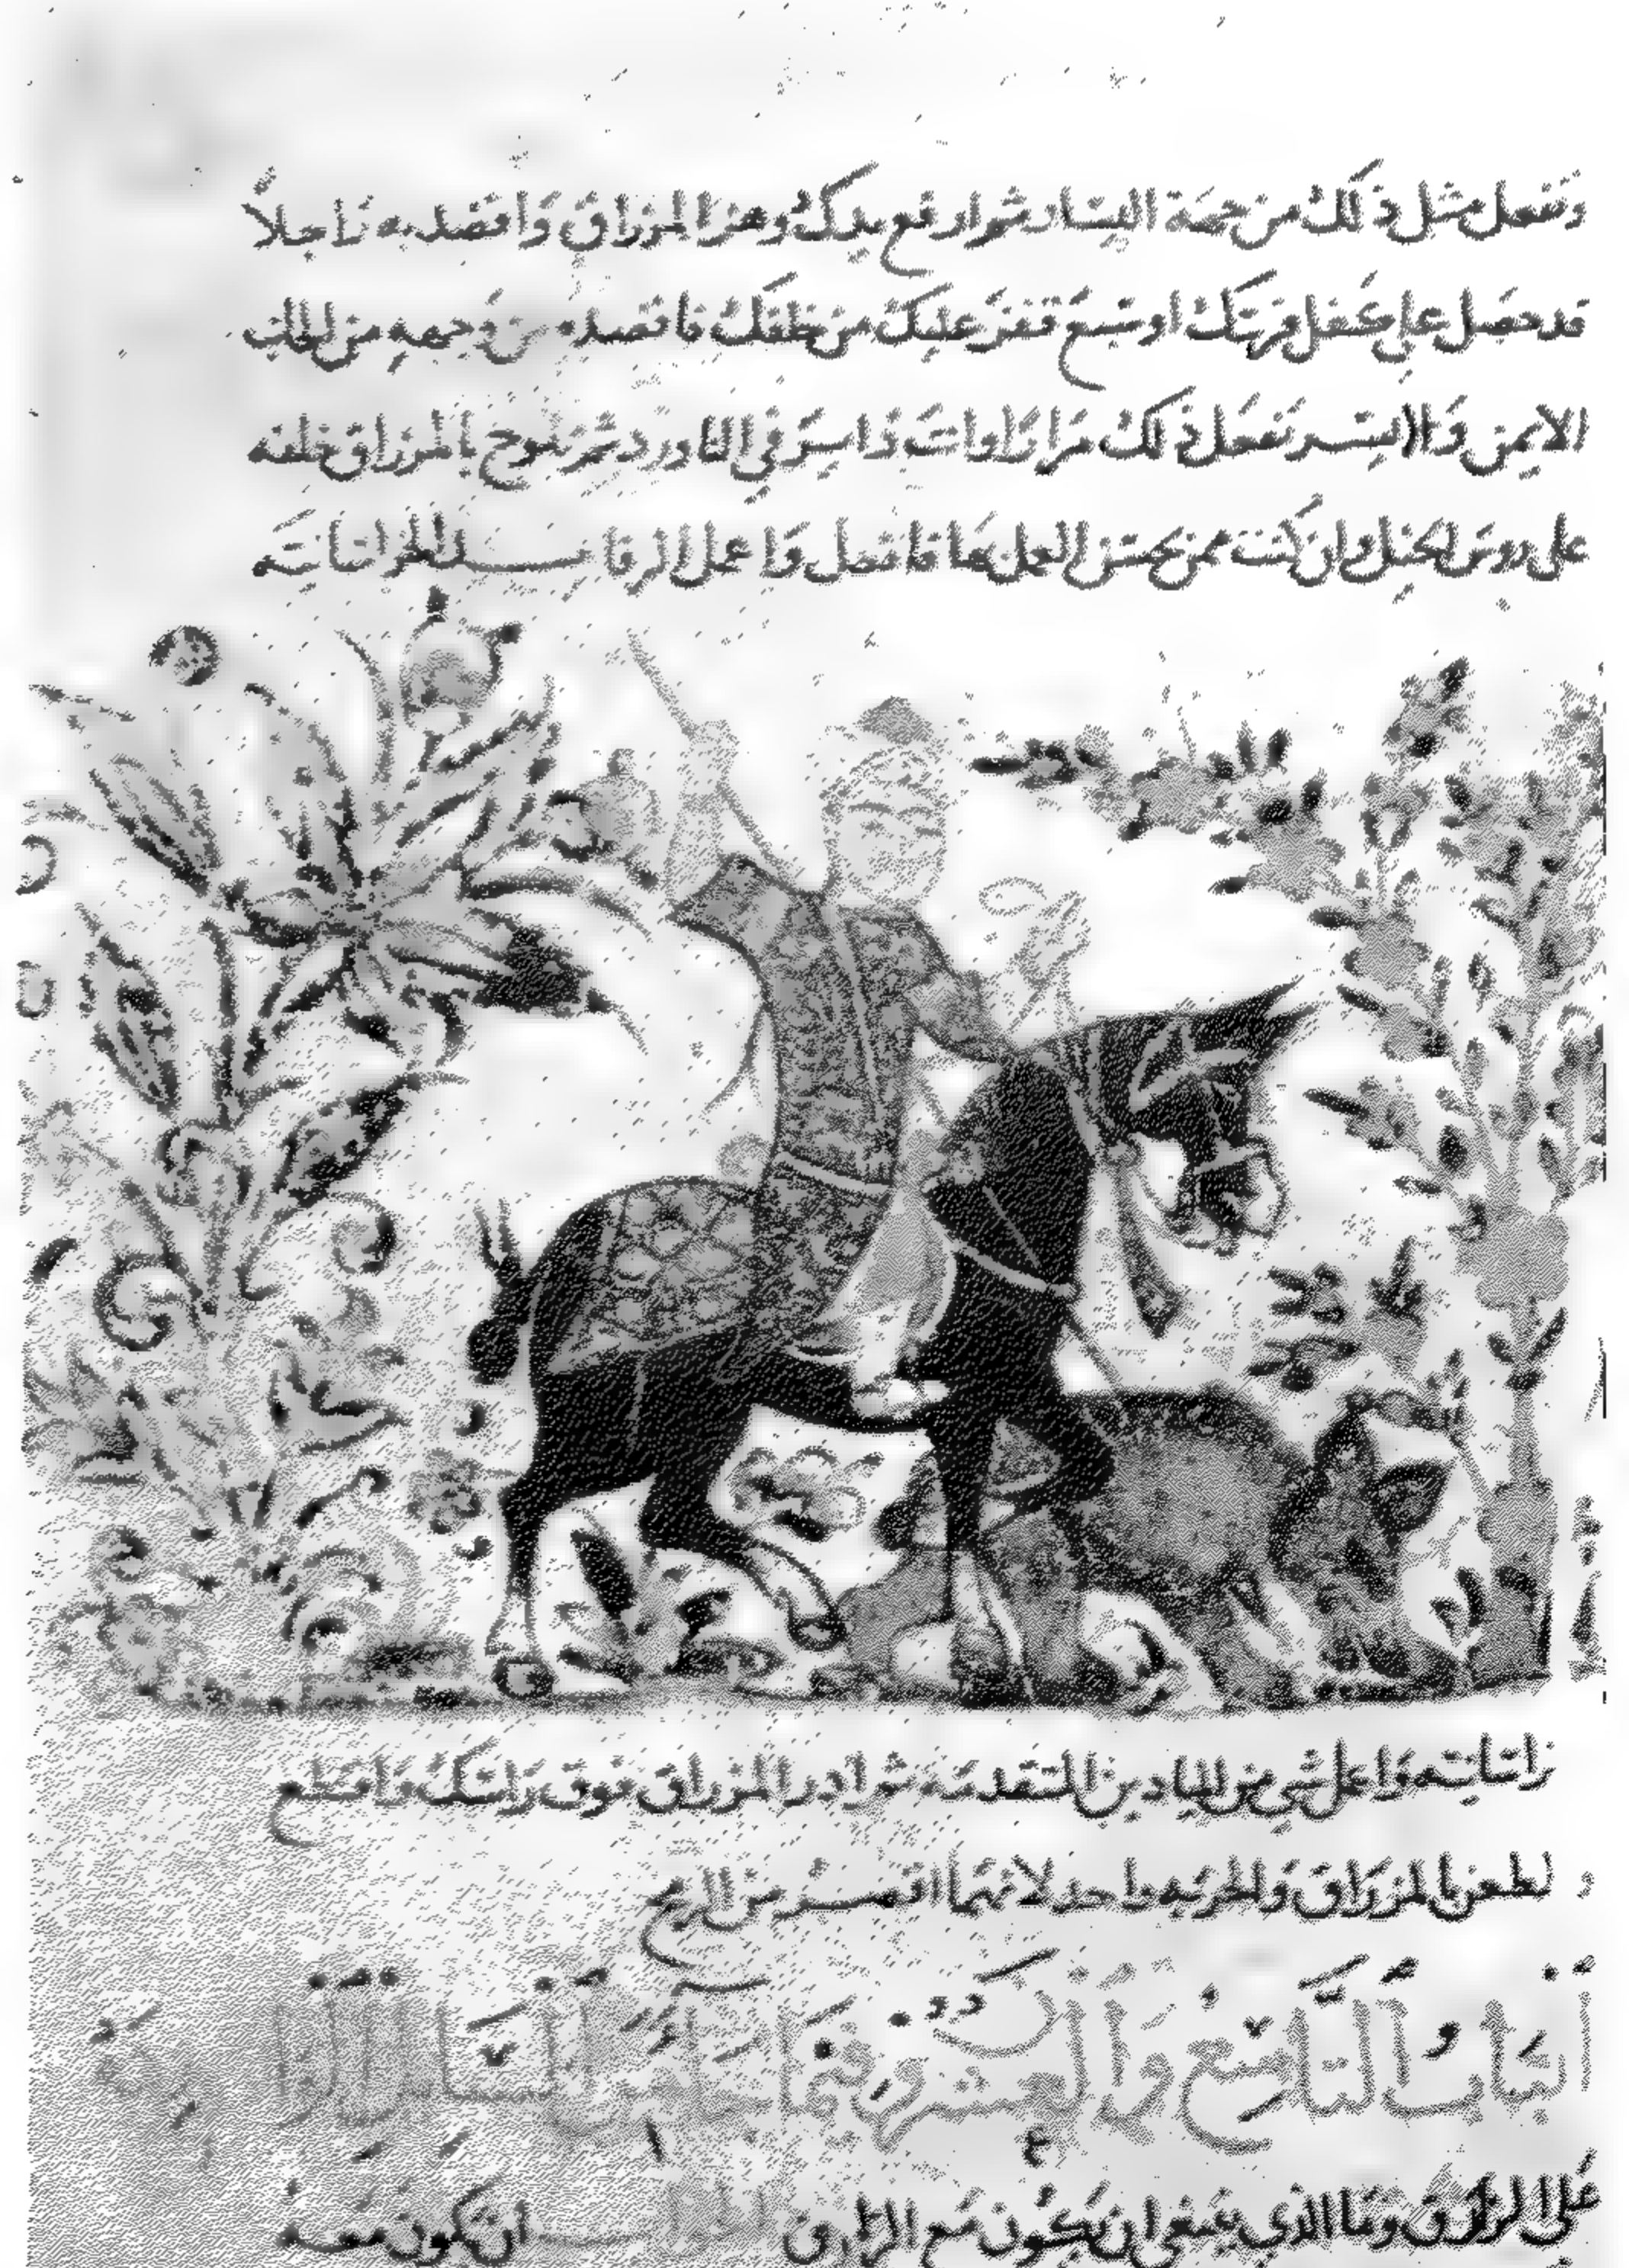 وتفعل مثل ذلك من جهة اليسار ثم ارفع يدك وهز المزراق واقصد به راجلاً
قد حصل على كفل فرسك او سبع قفز عليك من خلفك فاقصده من وجهه من الجانب
الايمن والايسر تفعل ذلك مرارا وانت داير في الناورد ثم تلوح بالمزراق خلفه
على روس الخيل وان كنت ممن يحسن العمل بها فافعل واعمل
راسانيه واعمل شي من الميادين المتقدمة ثم ادر المزراق فوق راسك واقلع
لطعن بالمزراق والحربه واحد لانهما اقصر من الريح
الباب التاسع والعشرون فيما
على الزراق وما الذي ينبغي ان يكون مع الزراق ان تكون معه